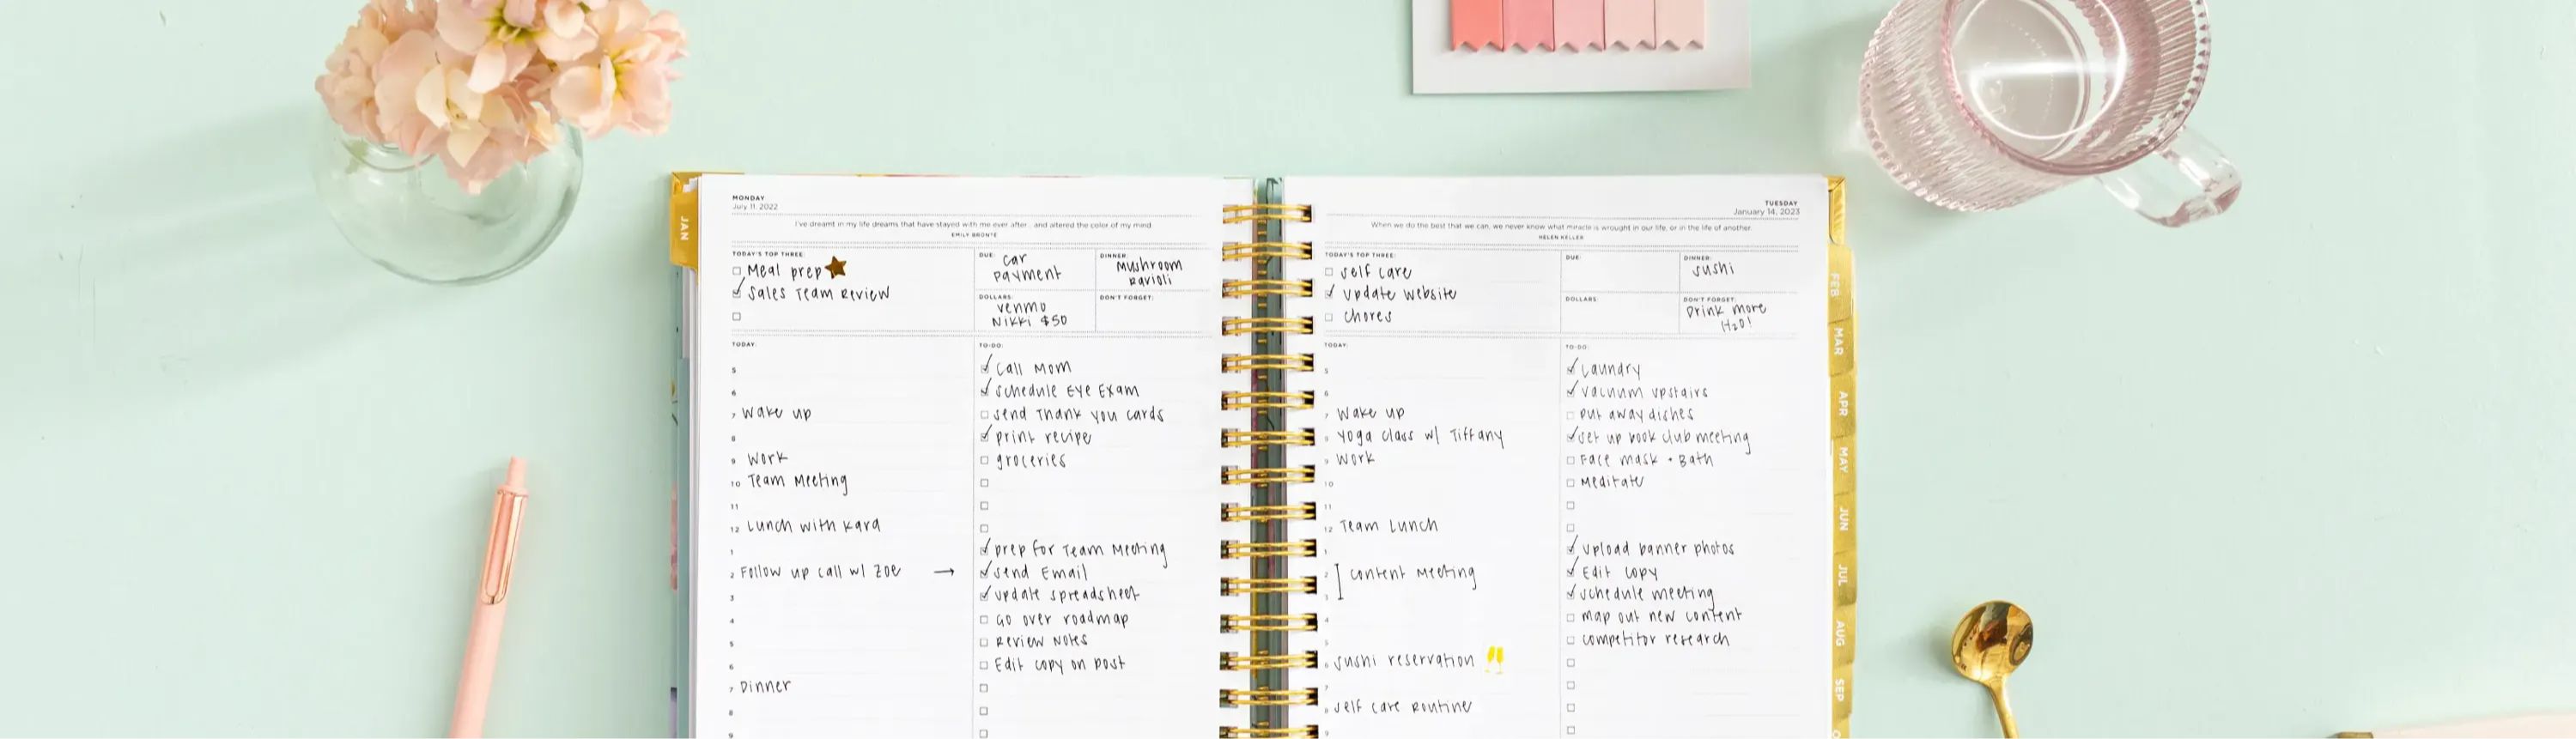 JAN
MONDAY
July 11, 2022
I've dreamt in my life dreams that have stayed with me ever after... and altered the color of my mind.
EMILY BRONTE
TODAY'S TOP THREE:
Meal prep
Sales Team Review
DUE:
car
payment
DINNER:
Mushroom
Ravioli
DOLLARS:
venmo
Nikki $50
DON'T FORGET:
TODAY:
5
6
7 Wake up
8
9 Work
10 Team Meeting
11
12 Lunch with Kara
1
2 Follow up call w/ Zoe →
3
4
5
6
7 Dinner
8
9
TO-DO:
Call Mom
Schedule Eye Exam
Send Thank you cards
print recipe
groceries
prep for Team Meeting
Send Email
update spreadsheet
Go over roadmap
Review Notes
Edit copy on post
TUESDAY
January 14, 2023
When we do the best that we can, we never know what miracle is wrought in our life, or in the life of another.
HELEN KELLER
TODAY'S TOP THREE:
self care
update website
chores
DUE:
DINNER:
sushi
DOLLARS:
DON'T FORGET:
Drink more
H2O!
TODAY:
5
6
7 Wake up
8 yoga class w/ Tiffany
9 Work
10
11
12 Team Lunch
1
2 content Meeting
3
4
5
6 sushi reservation
7
8 self care routine
9
TO-DO:
Laundry
vacuum upstairs
put away dishes
set up book club meeting
Face mask + Bath
Meditate
upload banner photos
Edit copy
schedule meeting
map out new content
competitor research
FEB
MAR
APR
MAY
JUN
JUL
AUG
SEP